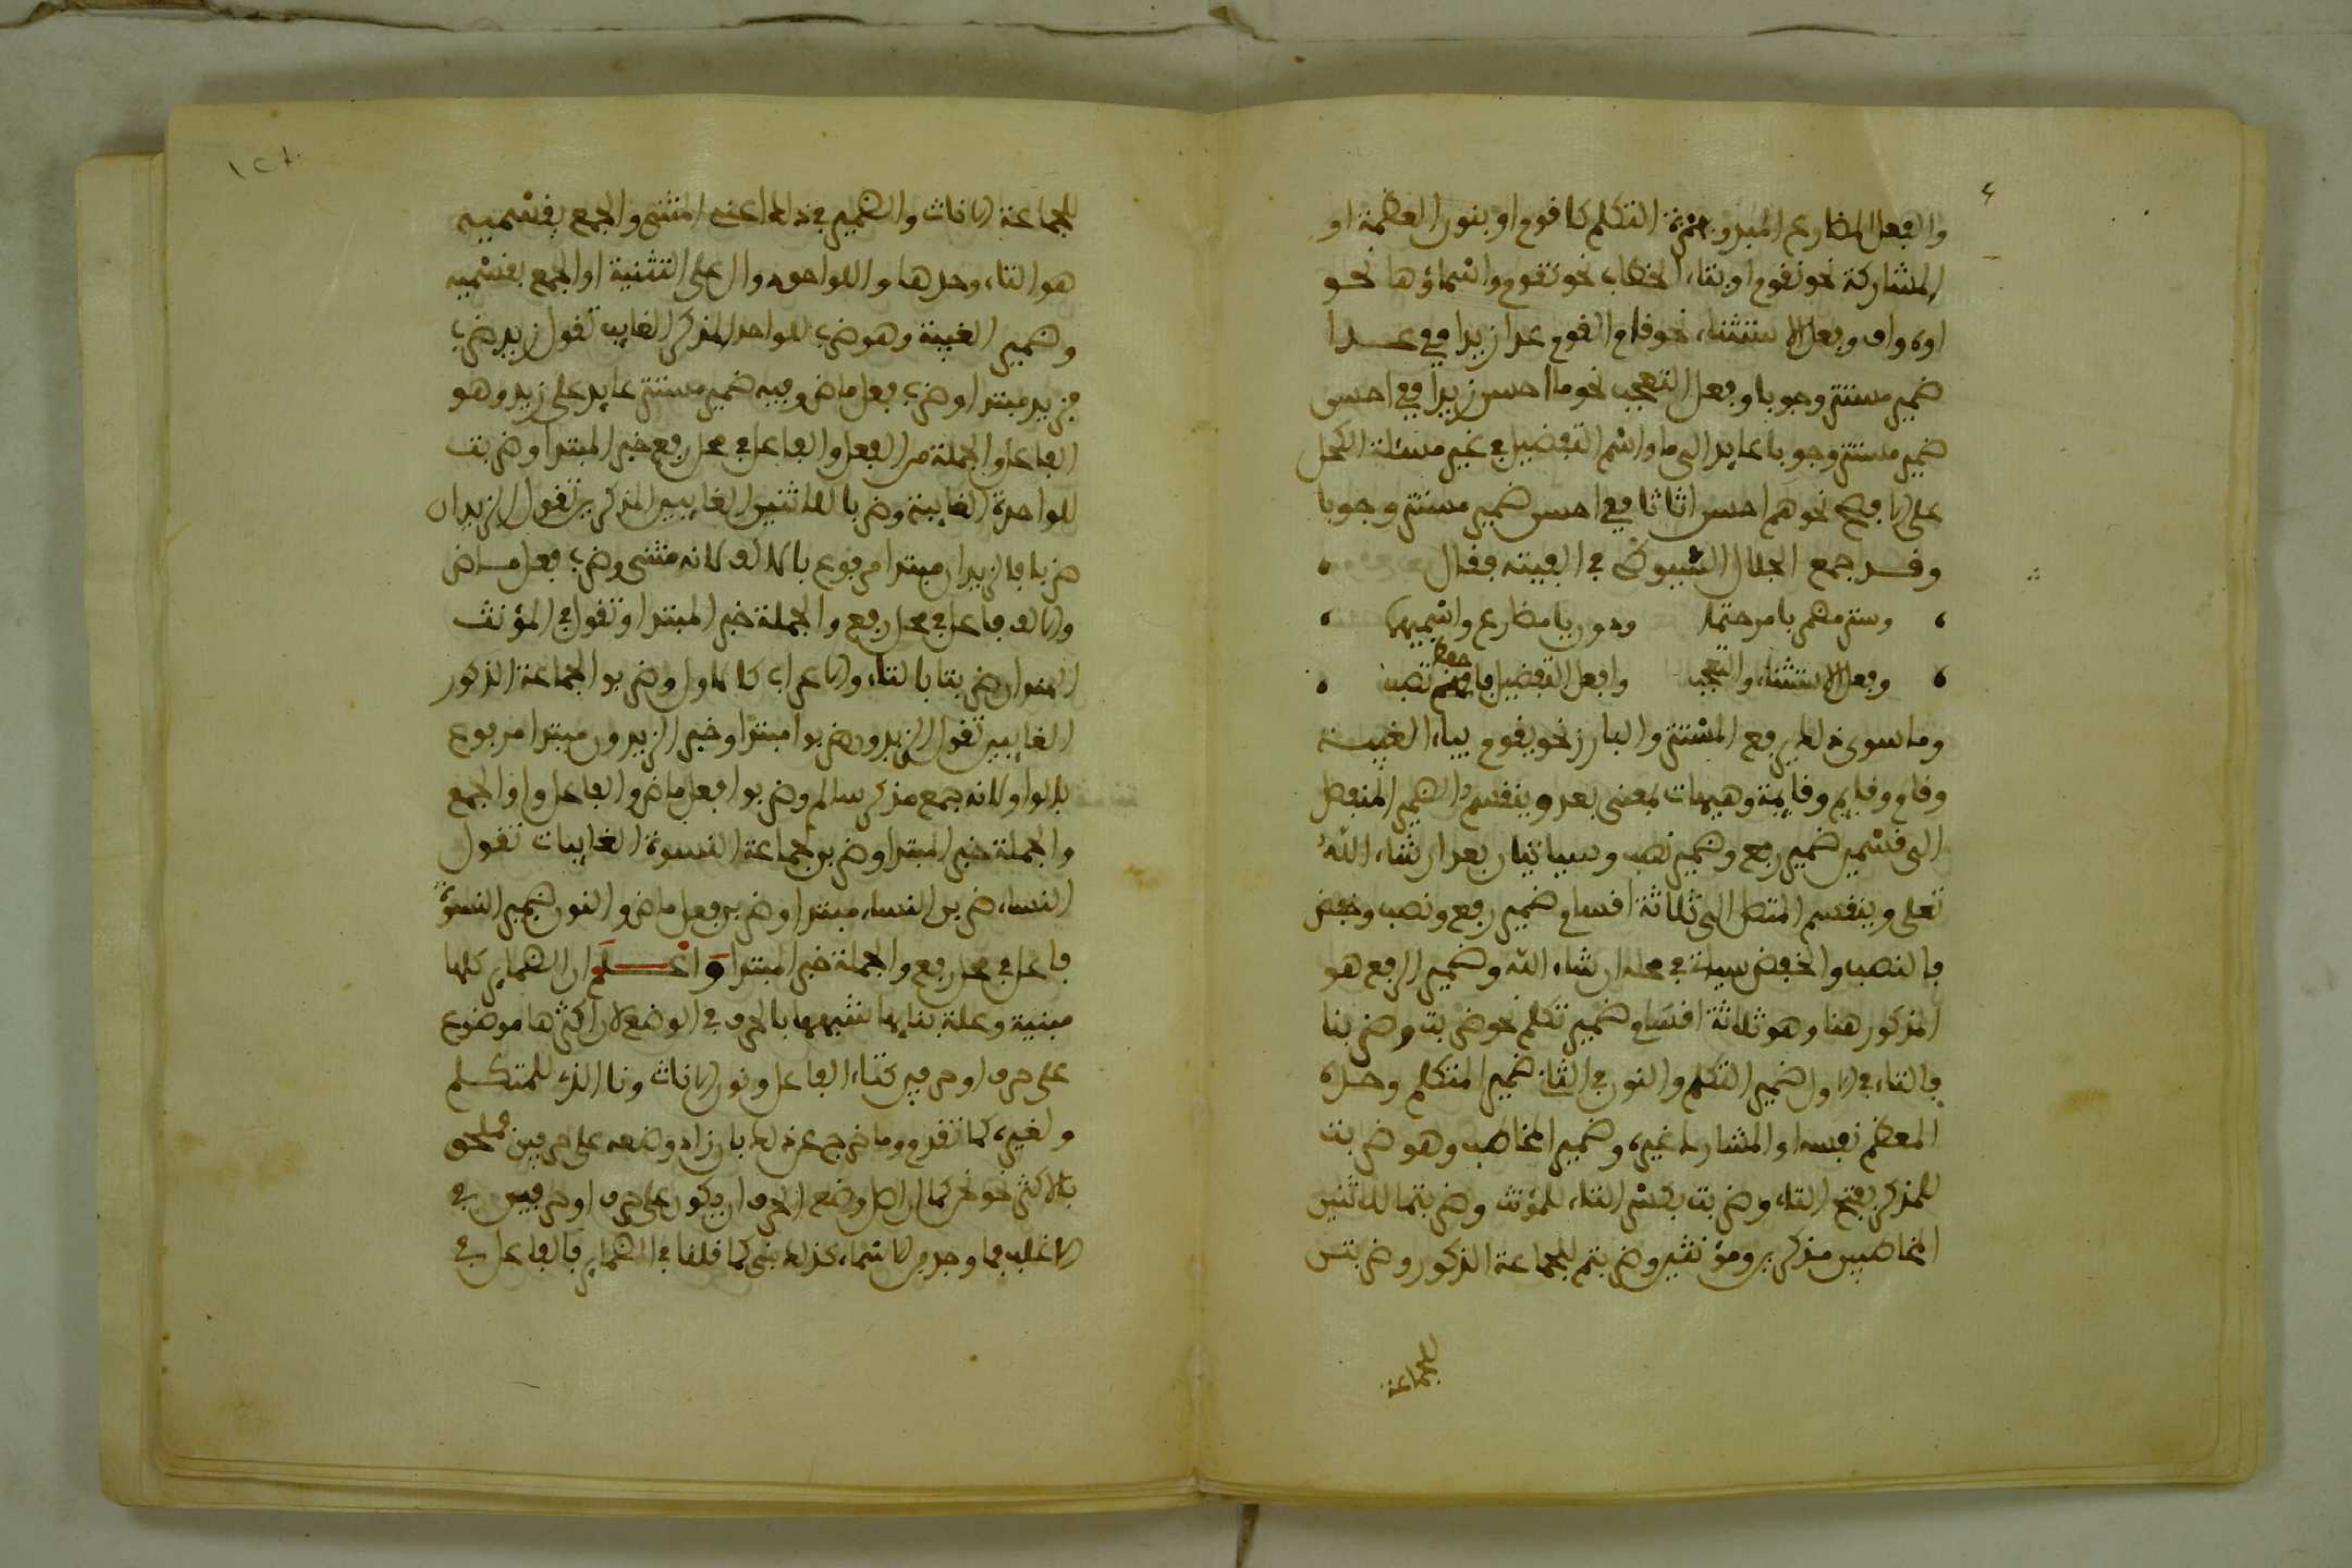 والفعل المضارع المبدو بهمزة التكلم كاقوم او بنون العظمة او
المشاركة نحو نقوم او بتاء الخطاب نحو تقوم واسماؤها نحو
اوه واف وفعل الاستثناء نحو قام القوم عدا زيدا ففي عدا
ضمير مستتر وجوبا وفعل التعجب نحو ما احسن زيدا ففي احسن
ضمير مستتر وجوبا عايد الى ما واسم التفضيل في غير مسئلة الكحل
على الافصح نحو هم احسن اثاثا ففي احسن ضمير مستتر وجوبا
وقد جمع الجلال السيوطي في الفيته فقال
وستر مضمر بامر حتما
وفعل الاستثناء والتعجب وافعل التفضيل
وما سوى ذلك يرفع المستتر والبارز نحو يقوم بياء الغيبة
وقام وقايم وقايمة وهيهات بمعنى بعد وينقسم الضمير المنفصل
الى قسمين ضمير رفع وضمير نصب وسياتيان بعد ان شاء الله
تعلى وينقسم المتصل الى ثلاثة اقسام ضمير رفع ونصب وخفض
فالنصب والخفض سيات في محله ان شاء الله وضمير الرفع هو
المذكور هنا وهو ثلاثة اقسام ضمير تكلم نحو ضربت وضربنا
فالتاء في الاول ضمير التكلم والنون في الثان ضمير المتكلم وحده
المعظم نفسه او المشارك غيره وضمير المخاطب وهو ضربت
للمذكر بفتح التاء وضربت بكسر التاء للمؤنث وضربتما للاثنين
المخاطبين مذكرين ومؤنثين وضربتم لجماعة الذكور وضربتن
لجماعة
لجماعة الاناث والضمير في ذلك اعني المثنى والجمع بقسميه
هو التاء وحدها واللواحق دوال على التثنية او الجمع بقسميه
وضمير الغيبة وهو ضرب للواحد المذكر الغايب تقول زيد ضرب
فزيد مبتدا وضرب فعل ماض وفيه ضمير مستتر عايد على زيد وهو
الفاعل والجملة من الفعل والفاعل في محل رفع خبر المبتدا وضربت
للواحدة الغايبة وضربا للاثنين الغايبين المذكرين تقول الزيدان
ضربا فالزيدان مبتدا مرفوع بالالف لانه مثنى وضرب فعل ماض
والالف فاعل في محل رفع والجملة خبر المبتدا وتقول في المؤنث
الهندان ضربتا بالتاء والاعراب كالاول وضربوا لجماعة الذكور
الغايبين تقول الزيدون ضربوا مبتدا وخبر الزيدون مبتدا مرفوع
بالواو لانه جمع مذكر سالم وضربوا فعل ماض والفاعل واو الجمع
والجملة خبر المبتدا وضربن لجماعة النسوة الغايبات تقول
النساء ضربن النساء مبتدا وضربن فعل ماض والنون ضمير النسوة
فاعل في محل رفع والجملة خبر المبتدا واعلم ان الضماير كلها
مبنية وعلة بنايها شبهها بالحرف في الوضع لان اكثرها موضوع
على حرف او حرفين كتاء الفاعل ونون الاناث ونا الذي للمتكلم
ولغيره كما تقدم وما خرج عن ذلك بان زاد وضعه على حرفين فملحق
بالاكثر نحو نحن كما ان اصل وضع الحرف ان يكون على حرف او حرفين في
الاغلب فما وجد من الاسماء كذلك بني كما قلنا في الضماير فالفاعل في